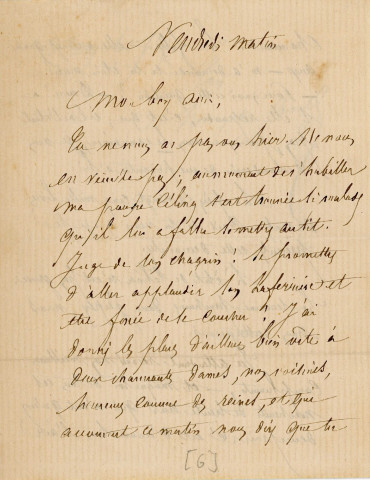 Vendredi matin
Mon bon ami,
Tu ne nous as pas vus hier. Ne nous
en veuille pas ; au moment de s'habiller
ma pauvre Céline s'est trouvée si malade
qu'il lui a fallu se mettre au lit.
Juge de son chagrin ! Se promettre
d'aller applaudir son et
être forcée de se coucher ! J'ai
donné les places d'ailleurs bien vite à
deux charmantes dames, nos voisines,
heureuses comme des reines, et qui
accourent ce matin nous dire que tu
[6]